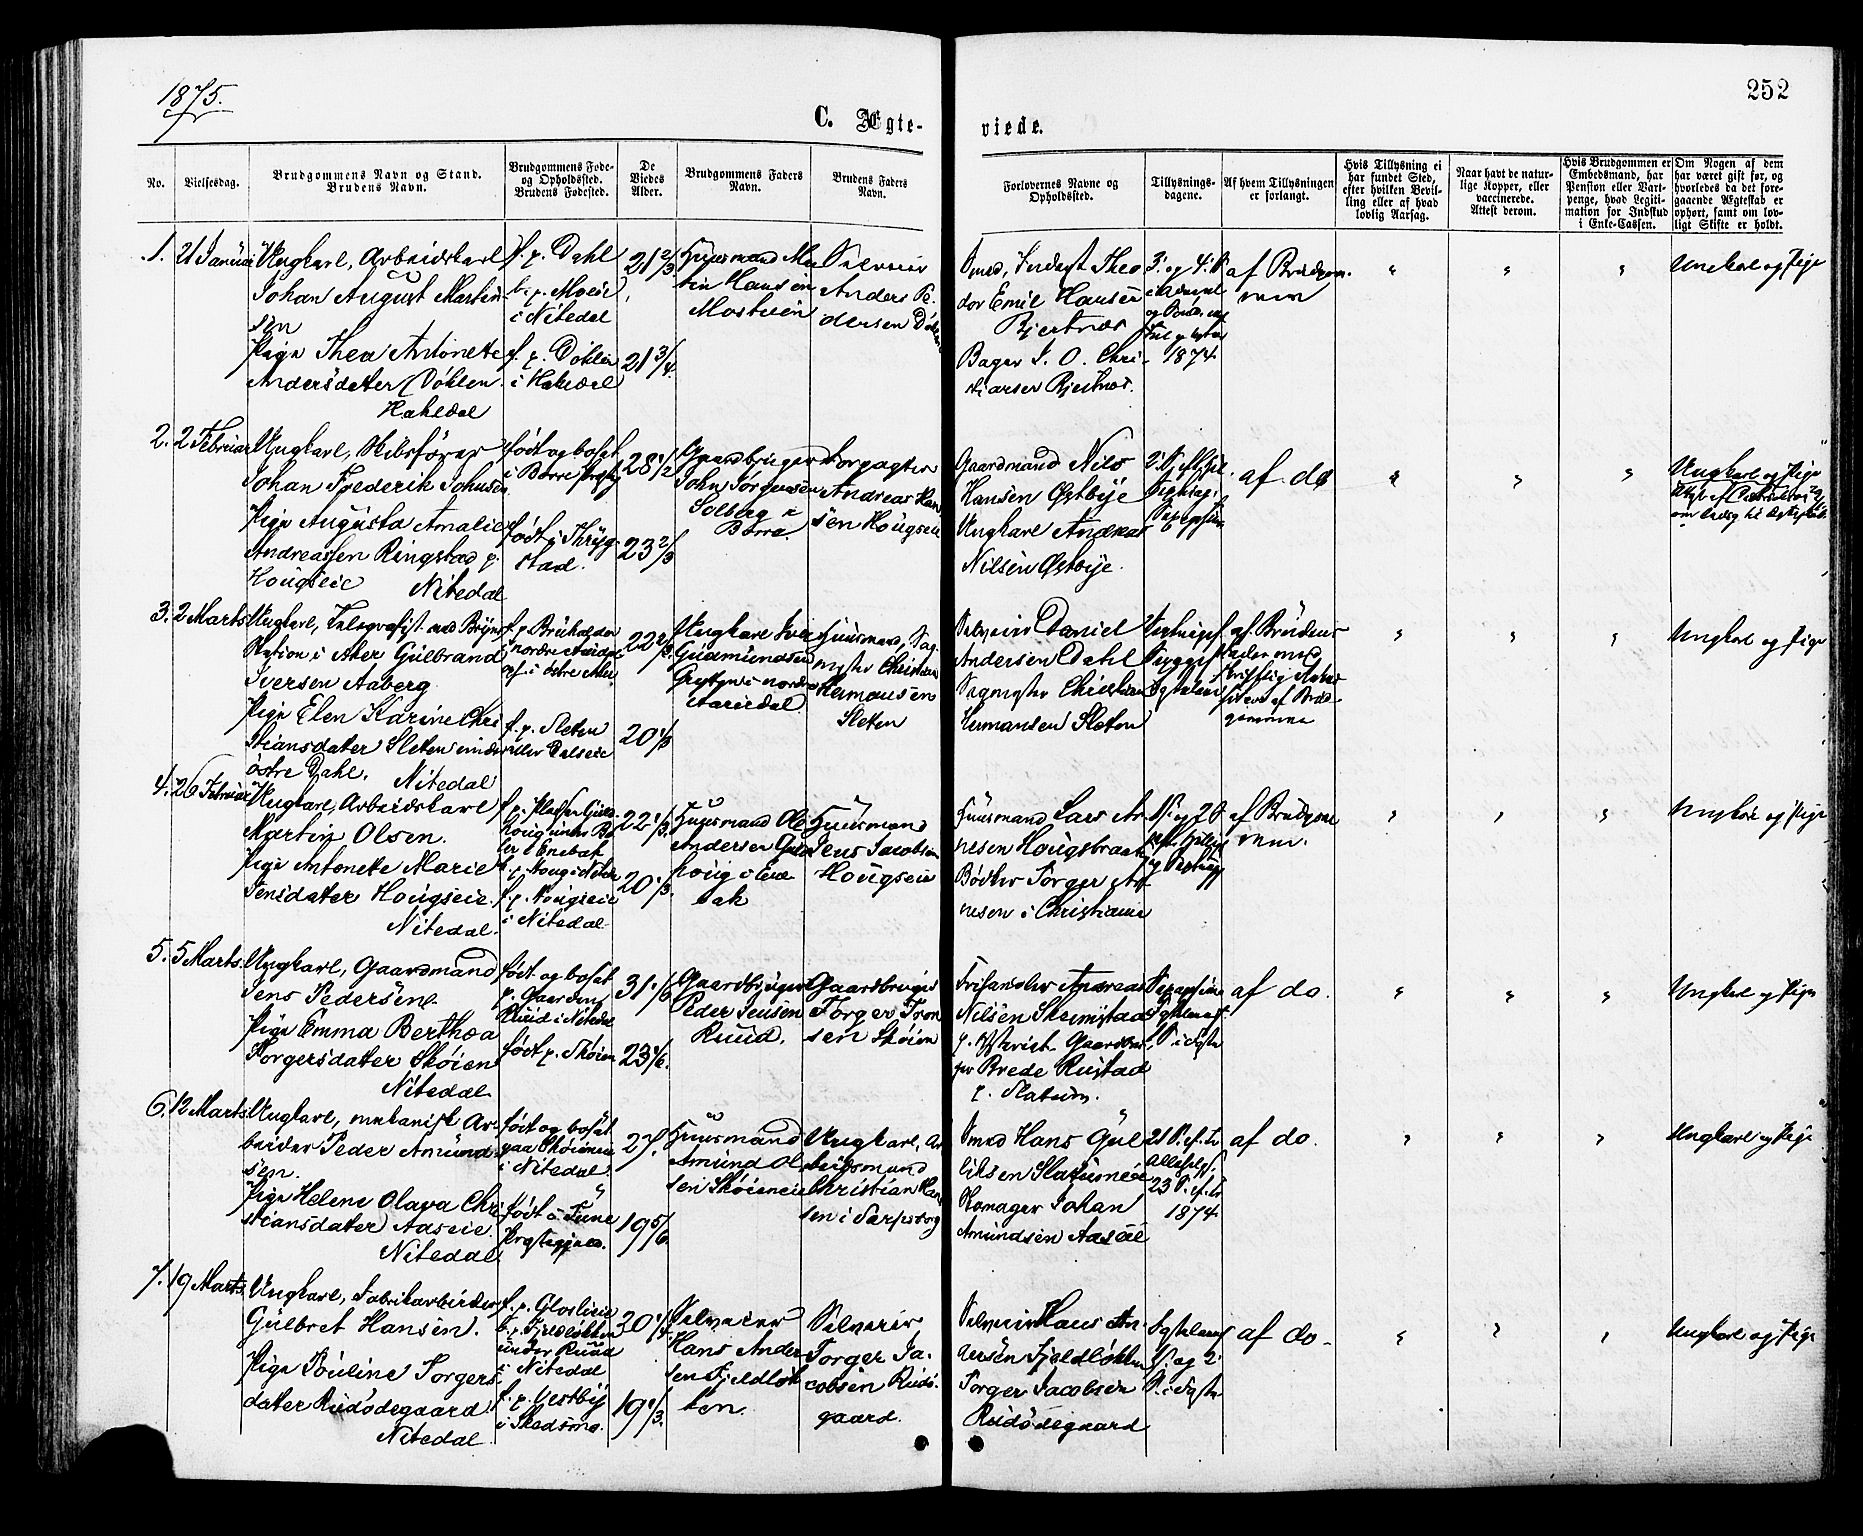 1875.
252
C. Ægte-
viede.
No.
Vielsesdag.
Brudgommens Navn og Stand.
Brudens Navn.
Brudgommens Føde-
og Opholdssted.
Brudens Fødested.
De
Viedes
Alder.
Brudgommens Faders
Navn.
Brudens Faders
Navn.
Forlovernes Navne og
Opholdssted.
Tillysnings-
dagene.
Af hvem Tillysningen
er forlangt.
Hvis Tillysning ei
har fundet Sted,
efter hvilken Bevil-
ling eller af hvad
lovlig Aarsag.
Naar havt de natur-
lige Kopper, eller
vaccinerede.
Attest derom.
Hvis Brudgommen er
Embedsmand, har
Pension eller Vart-
penge, hvad Legiti-
mation for Indskud
i Enke-Cassen.
Om Nogen af dem
har været gift før, og
hvorledes da det fore-
gaaende Ægteskab er
ophørt, samt om lov-
ligt Skifte er holdt.
1. 21 Januar
Ungkarl, Arbeidskarl
Johan August Martin
sen
Pige Thea Antonete
Andersdater Døhlen
Hakedal
f. p. Dahl
b. p. Moeie
i Nitedal
f. p. Døhlen
i Hakedal
21 2/3
21 3/4
Huusmand Mar
tin Hansen
Mosteien
Selveier
Anders Pe-
dersen Døhlen
Smed, Inderst Theo
dor Emil Hansen
Bjertnæs
Bager I. O. Chri-
stiansen Bjertnæs
3. og 4. S.
i Advent
1874
af Brudgom-
men
Ungkarl og Pige
2. 2 Februar
Ungkarl, Skibsfører
Johan Frederik Johnsen
Pige Augusta Amalie
Andreassen Ringstad p.
Hougseie Nitedal
født og bosat
i Borre Prstgj
født i Thryg-
stad.
28 1/2
23 2/3
Gaardbruger
John Jørgensen
Solberg i
Borre
Forpagter
Andreas Han
sen Hougseie
Gaardmand Nils
Hansen Østbye
Ungkarl Andreas
Nilsen Østbye.
af do
Ungkarl og Pige
3. 2 Marts
Ungkarl, Telegrafist ved Bryns
Station i Aker Gulbrand
Iversen Aaberg
Pige Elen Karine Chri
stiansdater Sleten under
østre Dahl. Nitedal
f. p. Sleten
22 2/3
20 1/3
Ungkarl Iver
Gudmundsen
i nordre
Aurdal
Huusmand, Sag-
mester Christian
Hermansen
Sleten
Selveier Daniel
Andersen Dahl
Sagmester Christian
Hermansen Sleten
af Brudens
Fader med
skriftlig
af Brud-
gommen
Ungkarl og Pige
4. 26 Februar
Ungkarl, Arbeidskarl
Martin Olsen.
Pige Antonete Marie
Jensdater Hougseie
Nitedal.
f. p. Hougseie
i Nitedal
22 1/3
20 1/3
Huusmand Ole
Andersen Guld
houg i Ene
bak
Huusmand
Jens Jacobsen
Hougseie
Huusmand Lars Ar
nesen Hougsbraaten
Bødker Torger Ar
nesen i Christiania
af Brudgom
men.
Ungkarl og Pige
5. 5 Marts.
Ungkarl, Gaardmand
Jens Pedersen.
Pige Emma Berthea
Torgersdater Skøien
Nitedal
født og bosat
p. Gaarden
Ruud i Nitedal
født p. Skøien
31 1/6
23 1/6.
Gaardbruger
Peder Jensen
Ruud.
Gaardbruger
Torger Tron
sen Skøien
Andreas
Nilsen Skrimstad
Gaardbru
ger Brede Rustad
p. Slatum.
af do.
Ungkarl og Pige
6. 12 Marts
Ungkarl, mekanisk Ar-
beider Peder Amund-
sen.
Pige Helene Olava Chri
stiansdater Aaseie
Nitedal
født og bosat
paa Skøieneie
i Nitedal
født i Tune
Prstegjæld.
27
19 5/6
Huusmand
Amund Ol
sen Skøieneie
Ungkarl, Ar
beidsmand
Christian Han
sen i Sarpsborg
Smed Hans Gul
liksen Slatumeie
Skomager Johan
Amundsen Aaseie
21 S. ef. Tr
23 S. ef. Tr
1874
af do.
Ungkarl og Pige
7. 19 Marts.
Ungkarl, Fabrikarbeider
Gulbret Hansen.
Pige Pouline Torgers
dater Rudødegaard
Nitedal
f. p. Gloslieie
b. p. Fjeldløkken
under Ruud
i Nitedal
f. p. Gestbye
i Skedsmo.
20 1/4
19 1/3.
Selveier
Hans Ander
sen Fjeldløk
ken.
Selveier
Torger Ja-
cobsen Rudø-
gaard.
Selveier Hans An-
dersen Fjeldløkken
Torger Jacobsen
Rudødegaard
af do
Ungkarl og Pige